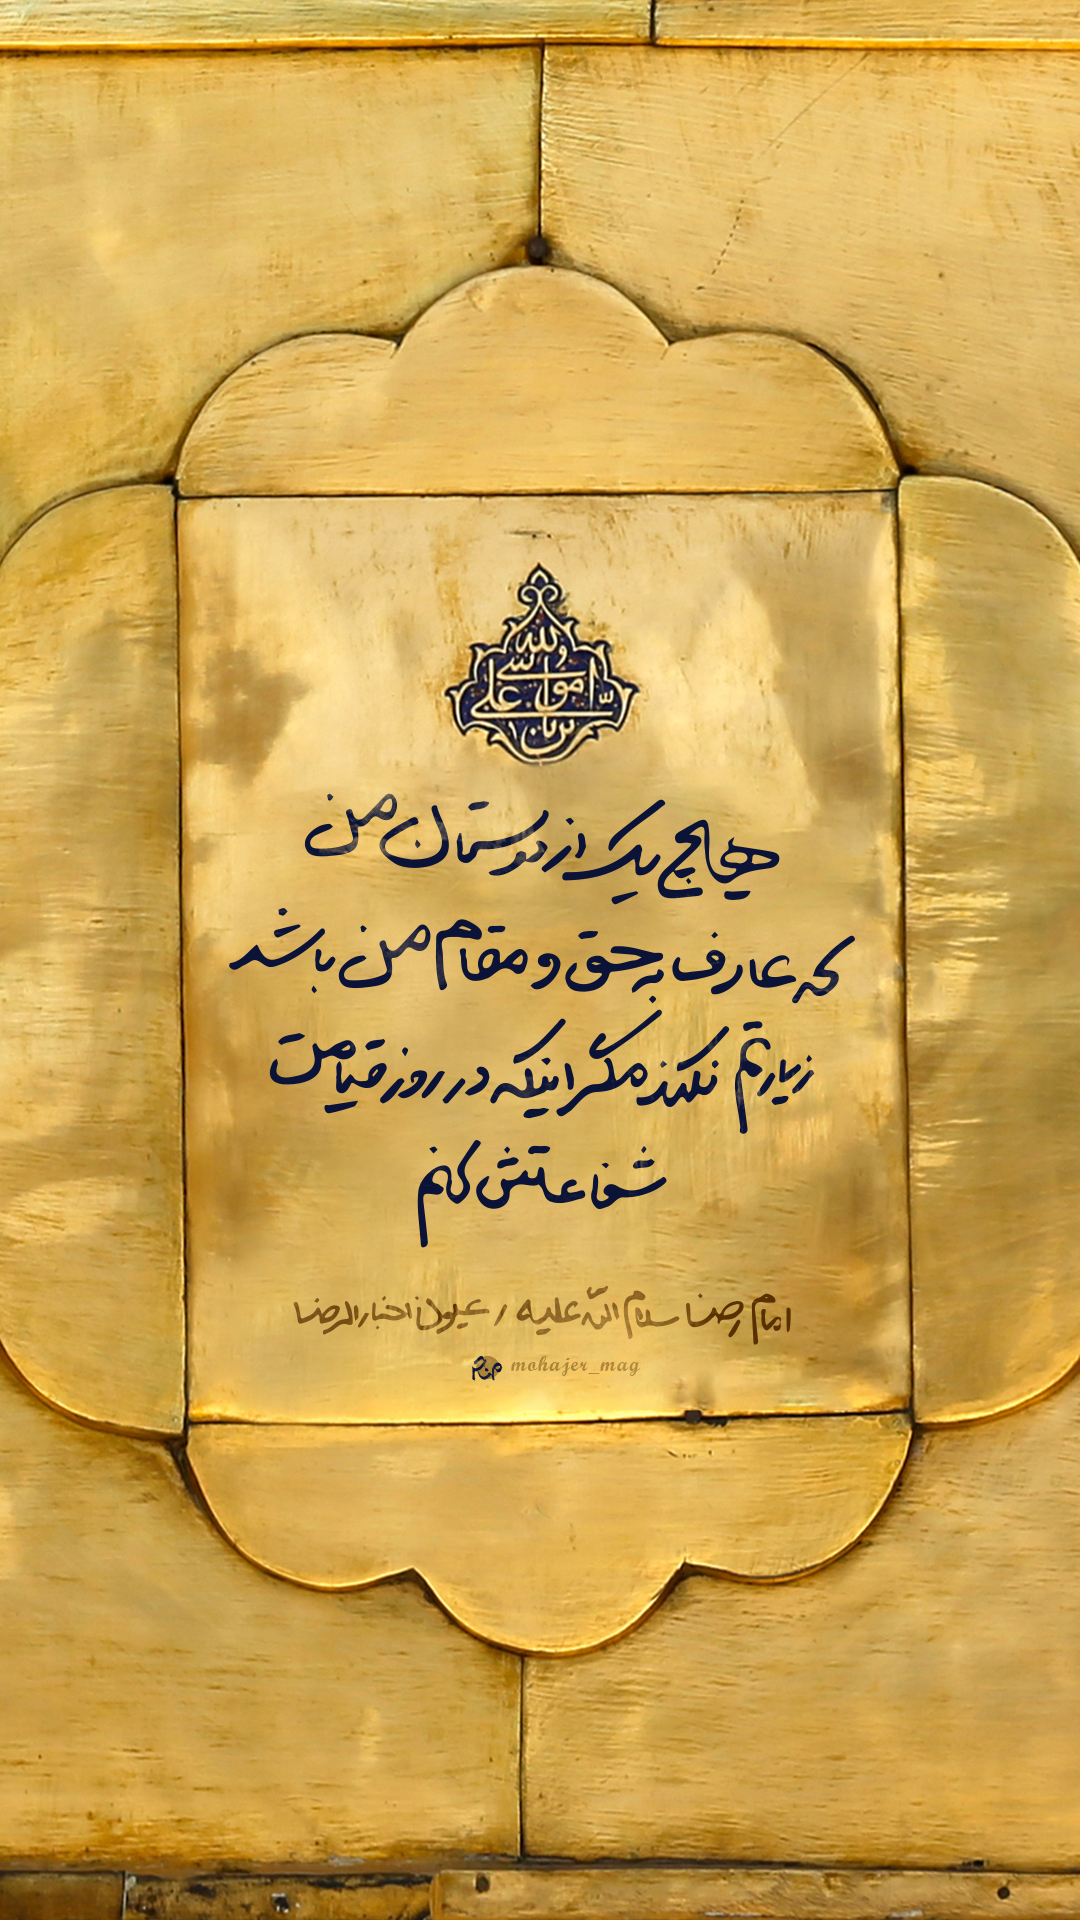 هیچ یک از دوستان من
که عارف به حق و مقام من باشد
زیارتم نکند مگر اینکه در روز قیامت
شفاعتش کنم
امام رضا سلام الله علیه / عیون اخبار الرضا
mohajer_mag